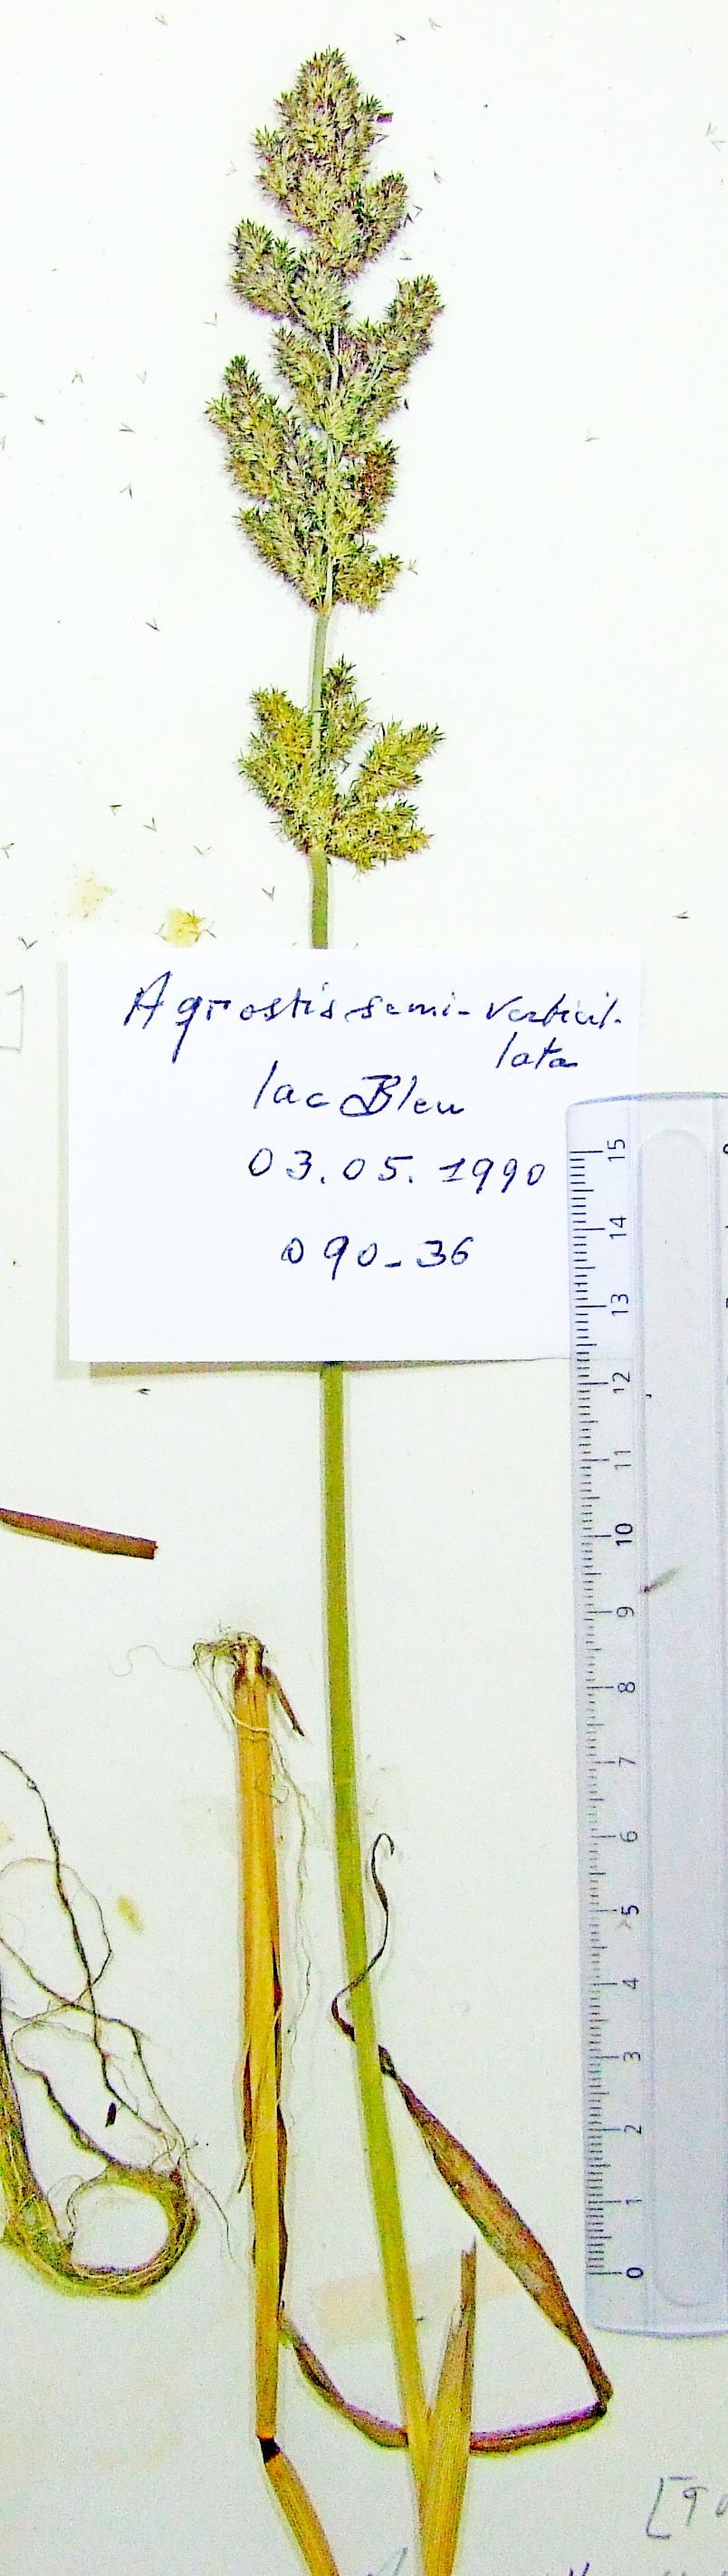 Agrostis semi-verticil-
lata
lac Bleu
03.05.1990
090-36
15
14
13
12
11
10
9
8
7
6
5
4
3
2
1
0